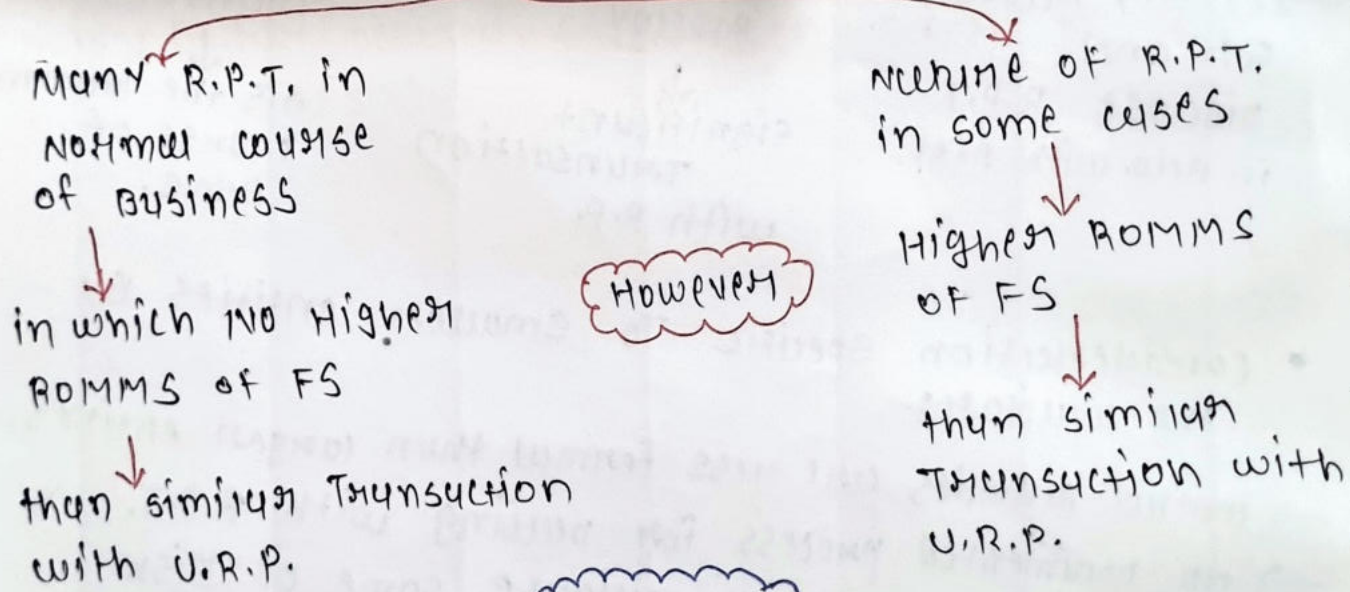 Many R.P.T. in
Normal course
of Business
in which No Higher
ROMMS of FS
than similar Transaction
with U.R.P.
However
Nature of R.P.T.
in some cases
Higher ROMMS
of FS
than similar
Transaction with
U.R.P.